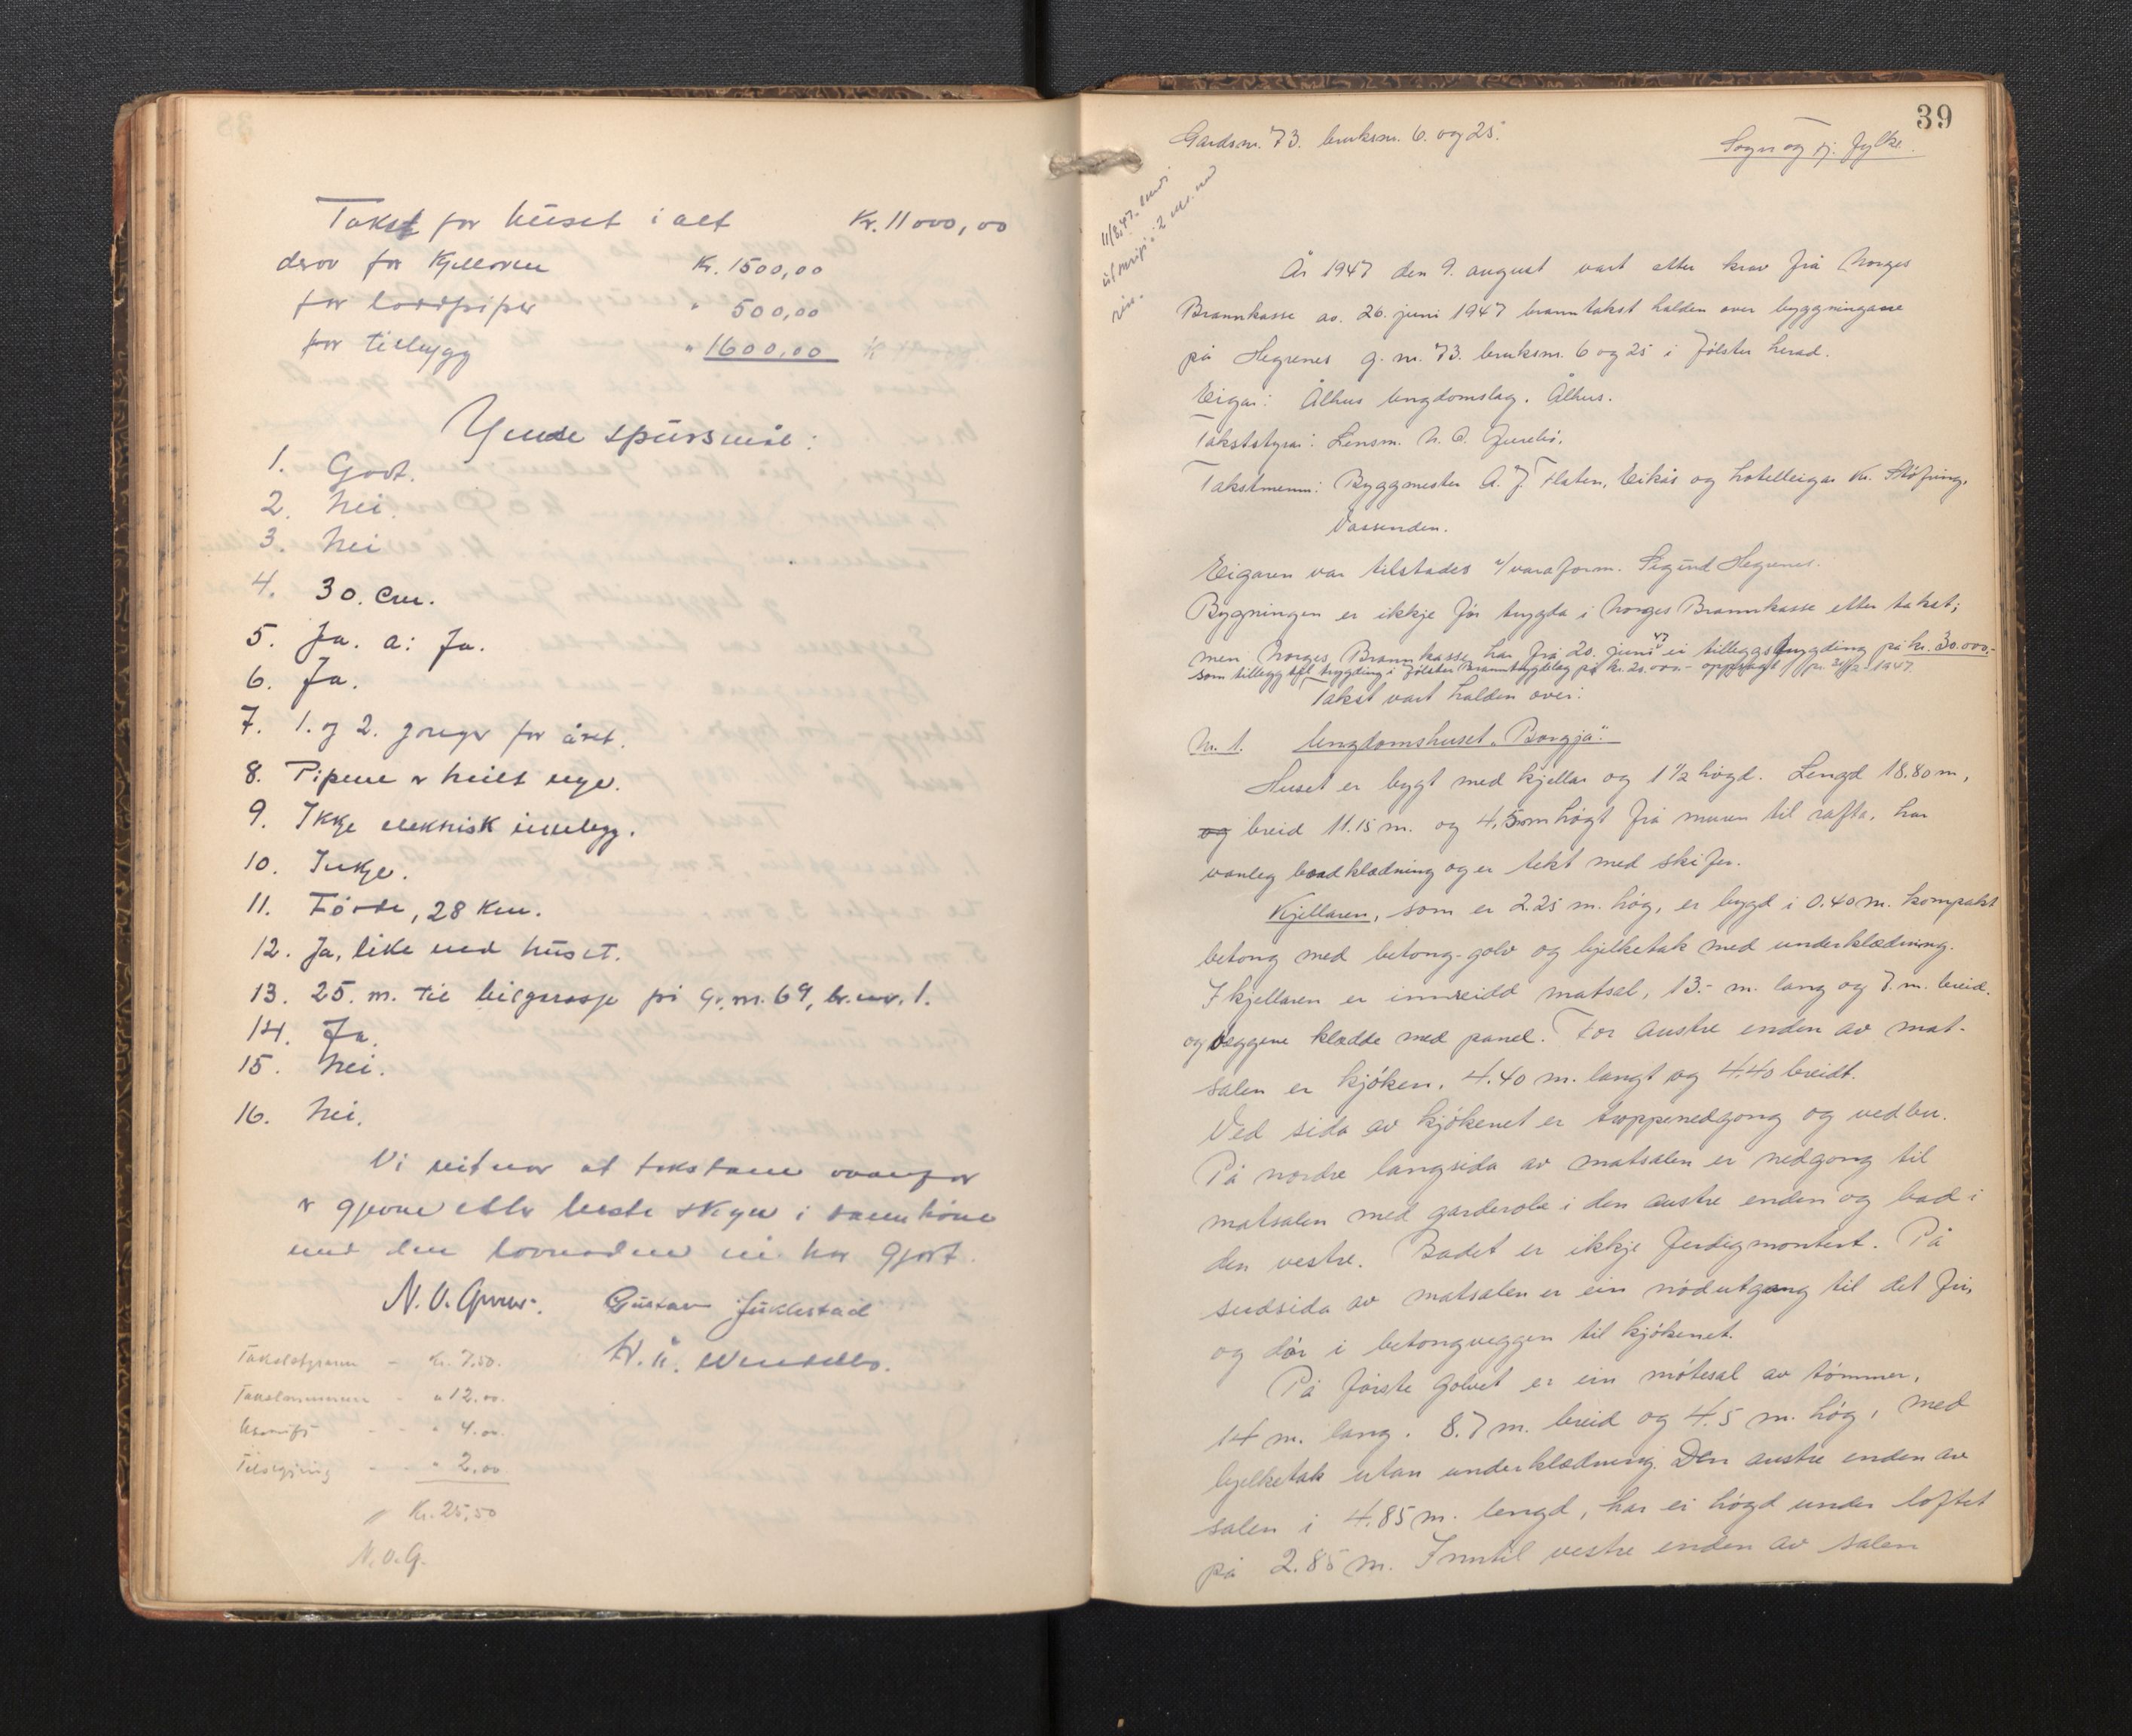 Takst for huset i alt Kr. 11 000,00
derov for Kjelleren Kr. 1500,00
for lodpiper " 500,00
for tilbygg " 1600,00
Ymse spursmål:
1. Godt.
2. Nei.
3. Nei
4. 30. cm.
5. Ja. a: Ja.
6. Ja.
7. 1. og 2. gonger for året.
8. Pipene er heilt nye.
9. Ikkje elektrisk innlegg.
10. Inkje.
11. Förde, 28 Km.
12. Ja, like ved huset.
13. 25. m. til bilgarasje på G.nr. 69, br.nr. 1.
14. Ja.
15. Nei.
16. Nei.
Vi vitnar at takstane ovanfor
er gjevne etter beste skyn i samhöve
med den lovnaden vi har gjort.
N. O. Gjesdal. Gustav Juklestad
Takststyraren - Kr. 7,50.
Takstmennene - " 12,00.
Utskrift - - " 4,00.
Tilsejing - - " 2,00
Kr. 25,50
N.O.G.
39
Gardsnr. 73. bruksnr. 6. og 25.
Sogn og Fj. fylke.
11/8.47. sendt
utskrift i 2 eks.
År 1947 den 9. august vart etter krav frå Norges
Brannkasse av. 26. juni 1947 branntakst halden over byggningane
på Hegrenes g. nr. 73. bruksnr. 6 og 25 i Jølster herad.
Eigar: Ålhus Ungdomslag. Ålhus.
Takststyrar: Lensm. N. O.
Takstmenn: Byggmester A. J. Flaten, Eikås og hotelleigar Kr. Støfring,
Vassenden.
Eigaren var tilstades v/varaform. Sigurd Hegrenes.
Bygningen er ikkje før trygda i Norges Brannkasse etter takst;
men Norges Brannkasse har frå 20. juni 47 ei tilleggstrygding på kr. 30.000,-
som tillegg til trygding i Jølster Branntrygdelag på kr. 20.000.- oppsagt pr. 31/12-1947.
Takst vart halden over:
Nr. 1. Ungdomshuset "Borgja".
Huset er bygt med kjellar og 1 1/2 høgd. Lengd 18.80 m,
og breid 11.15 m. og 4,50m høgt frå muren til rafta, har
vanleg bordklædning og er tekt med skifer.
Kjellaren, som er 2.25 m. høg, er bygd i 0.40 m. kompakt
betong med betong-golv og bjelketak med underklædning.
I kjellaren er innreidd matsal, 13.- m. lang og 7. m. breid.
og veggene klædde med panel. For austre enden av mat-
salen er kjøken, 4.40 m. langt og 4.40 breidt.
Ved sida av kjøkenet er trappenedgong og vedbu.
På nordre langsida av matsalen er nedgong til
matsalen med garderobe i den austre enden og bad i
den vestre. Badet er ikkje ferdigmontert. På
sudsida av matsalen er ein nødutgang til det fri,
og dør i betongveggen til kjøkenet.
På første golvet er ein møtesal av tømmer,
14 m. lang. 8.7 m. breid og 4.5 m. høg, med
bjelketak utan underklædning. Den austre enden av
salen i 4.85 m. lengd, har ei høgd under loftet
på 2.85 m. Inntil vestre enden av salen